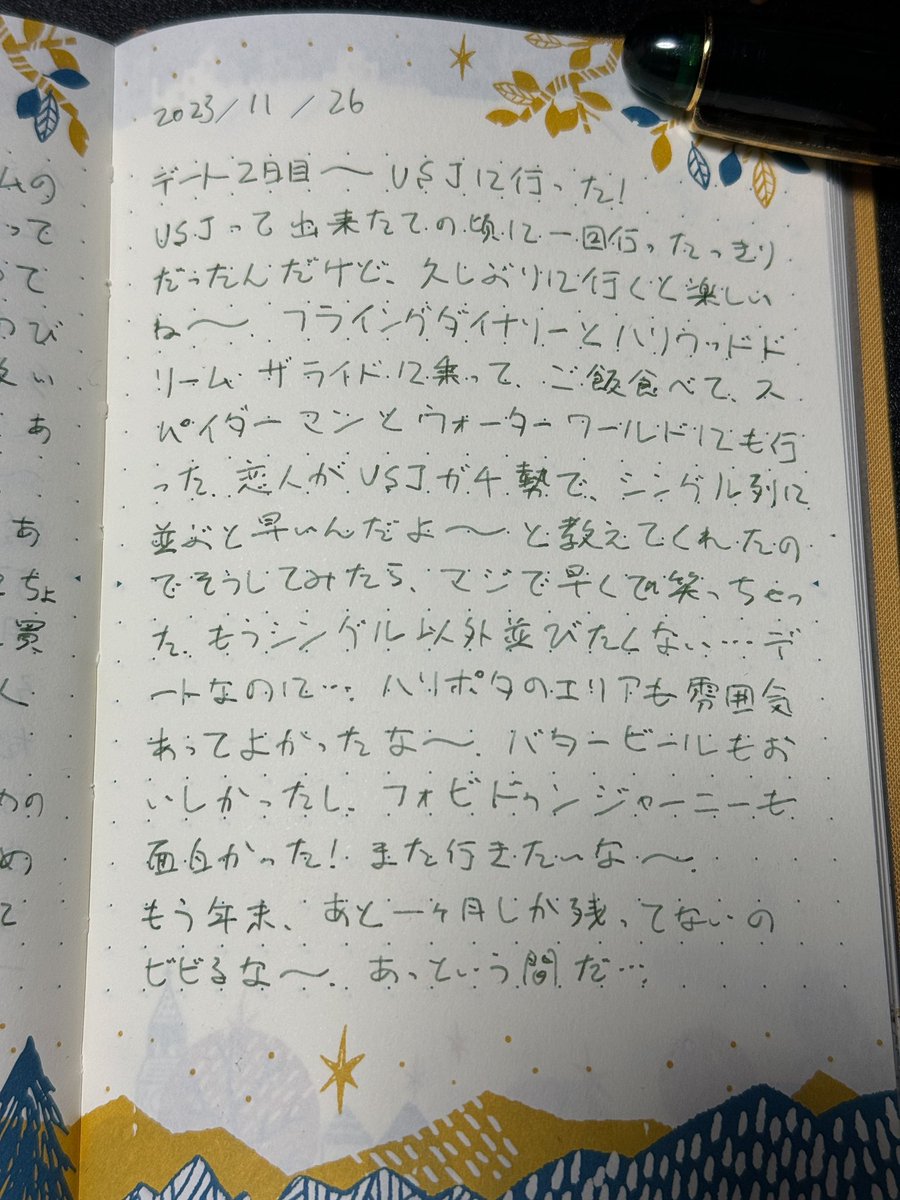 ムの
って
で
び
い
あ
あ
ちょ
買
ん
の
め
て
2023/11/26
デート2日目〜USJに行った!
USJって出来たての頃に一回行ったっきり
だったんだけど、久しぶりに行くと楽しい
ね〜。フライングダイナソーとハリウッドド
リームザライドに乗って、ご飯食べて、ス
パイダーマンとウォーターワールドにも行
った。恋人がUSJガチ勢で、シングル列に
並ぶと早いんだよ〜と教えてくれたの
でそうしてみたら、マジで早くて笑っちゃっ
た。もうシングル以外並びたくない…デ
ートなのに…。ハリポタのエリアも雰囲気
あってよかったな〜。バタービールもお
いしかったし、フォビドゥンジャーニーも
面白かった!また行きたいな〜。
もう年末、あと一ヶ月しか残ってないの
ビビるな〜。あっという間だ…